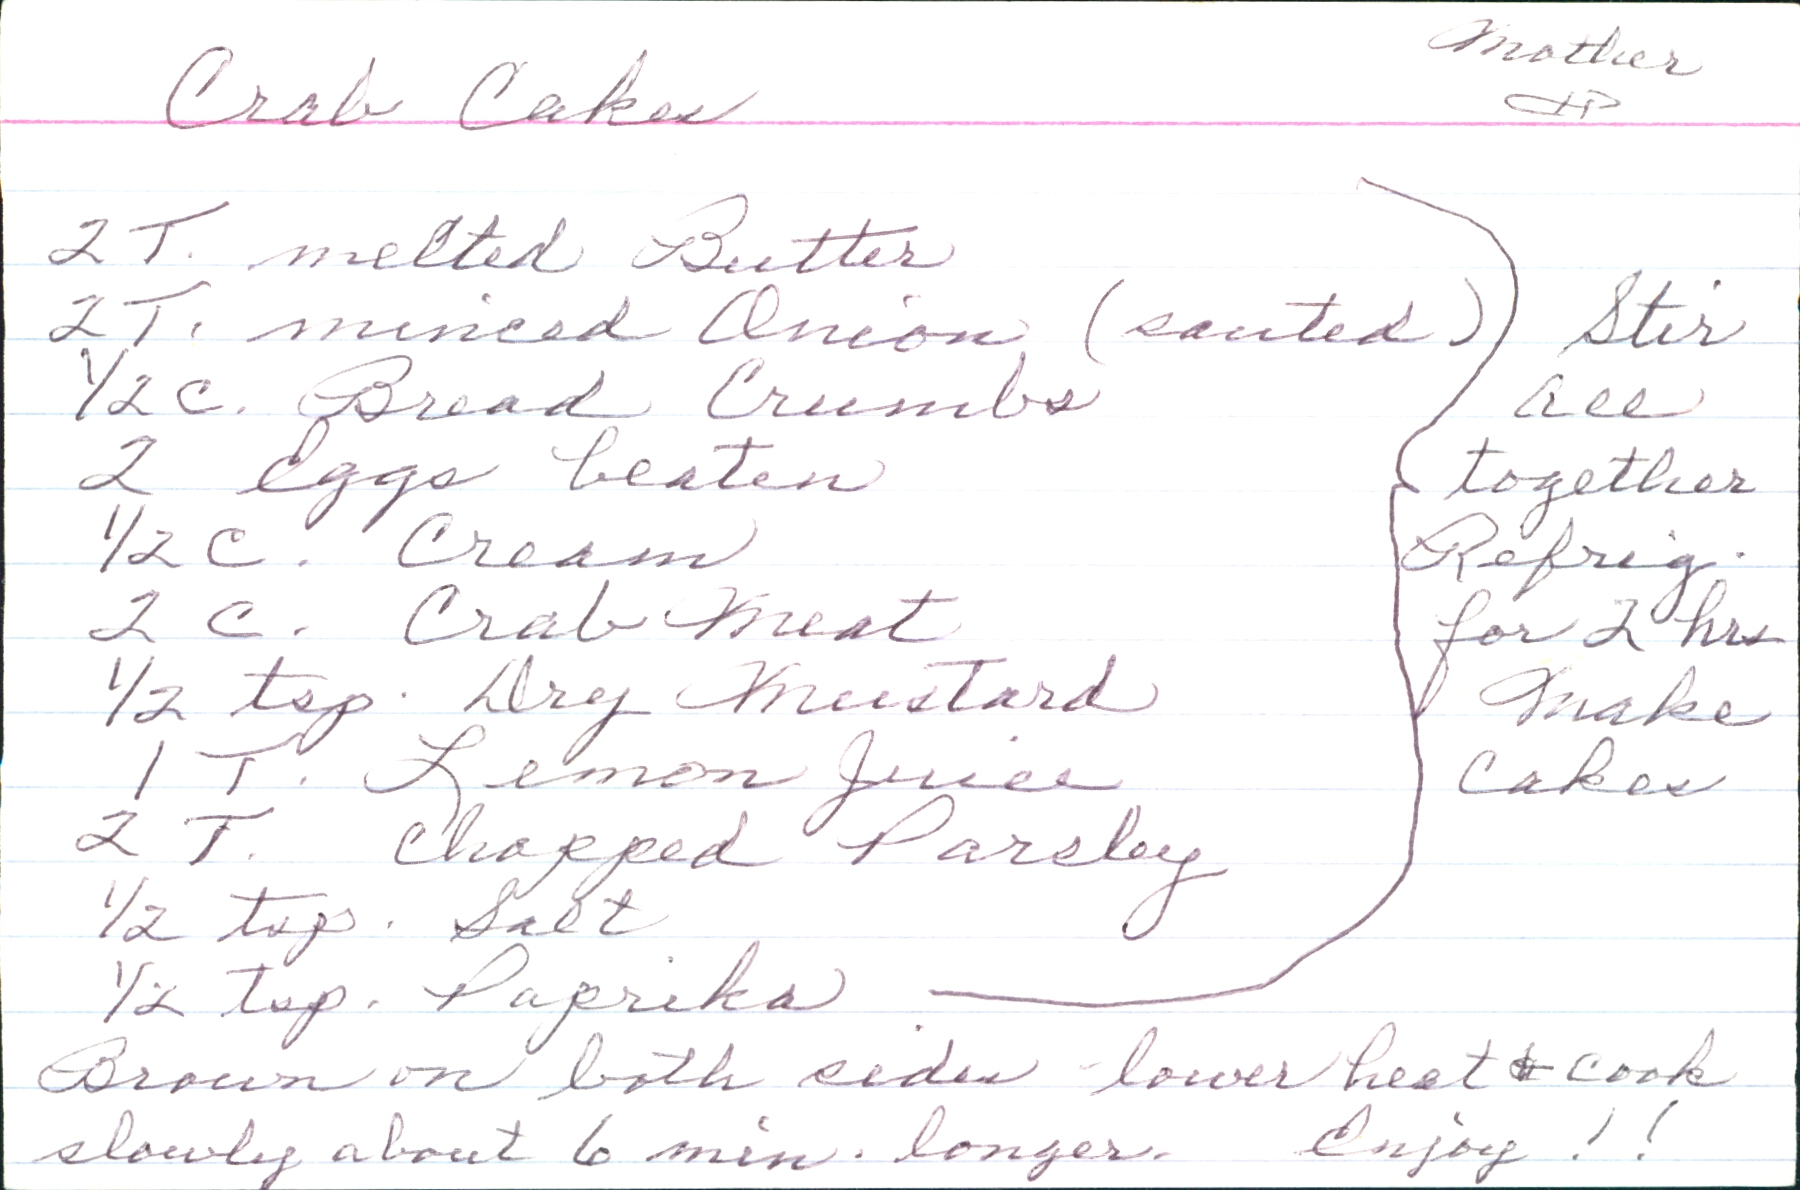 Mother
Crab Cakes
2 T. melted Butter
2 T. minced Onion (sauted)
1/2 c. Bread Crumbs
2 Eggs beaten
1/2 c. Cream
2 c. Crab Meat
1/2 tsp. Dry Mustard
1 T. Lemon Juice
2 T. Chopped Parsley
1/2 tsp. Salt
1/2 tsp. Paprika
Stir
all
together
Refrig.
for 2 hrs
Make
Cakes
Brown on both sides - lower heat & cook
slowly about 6 min. longer. Enjoy!!